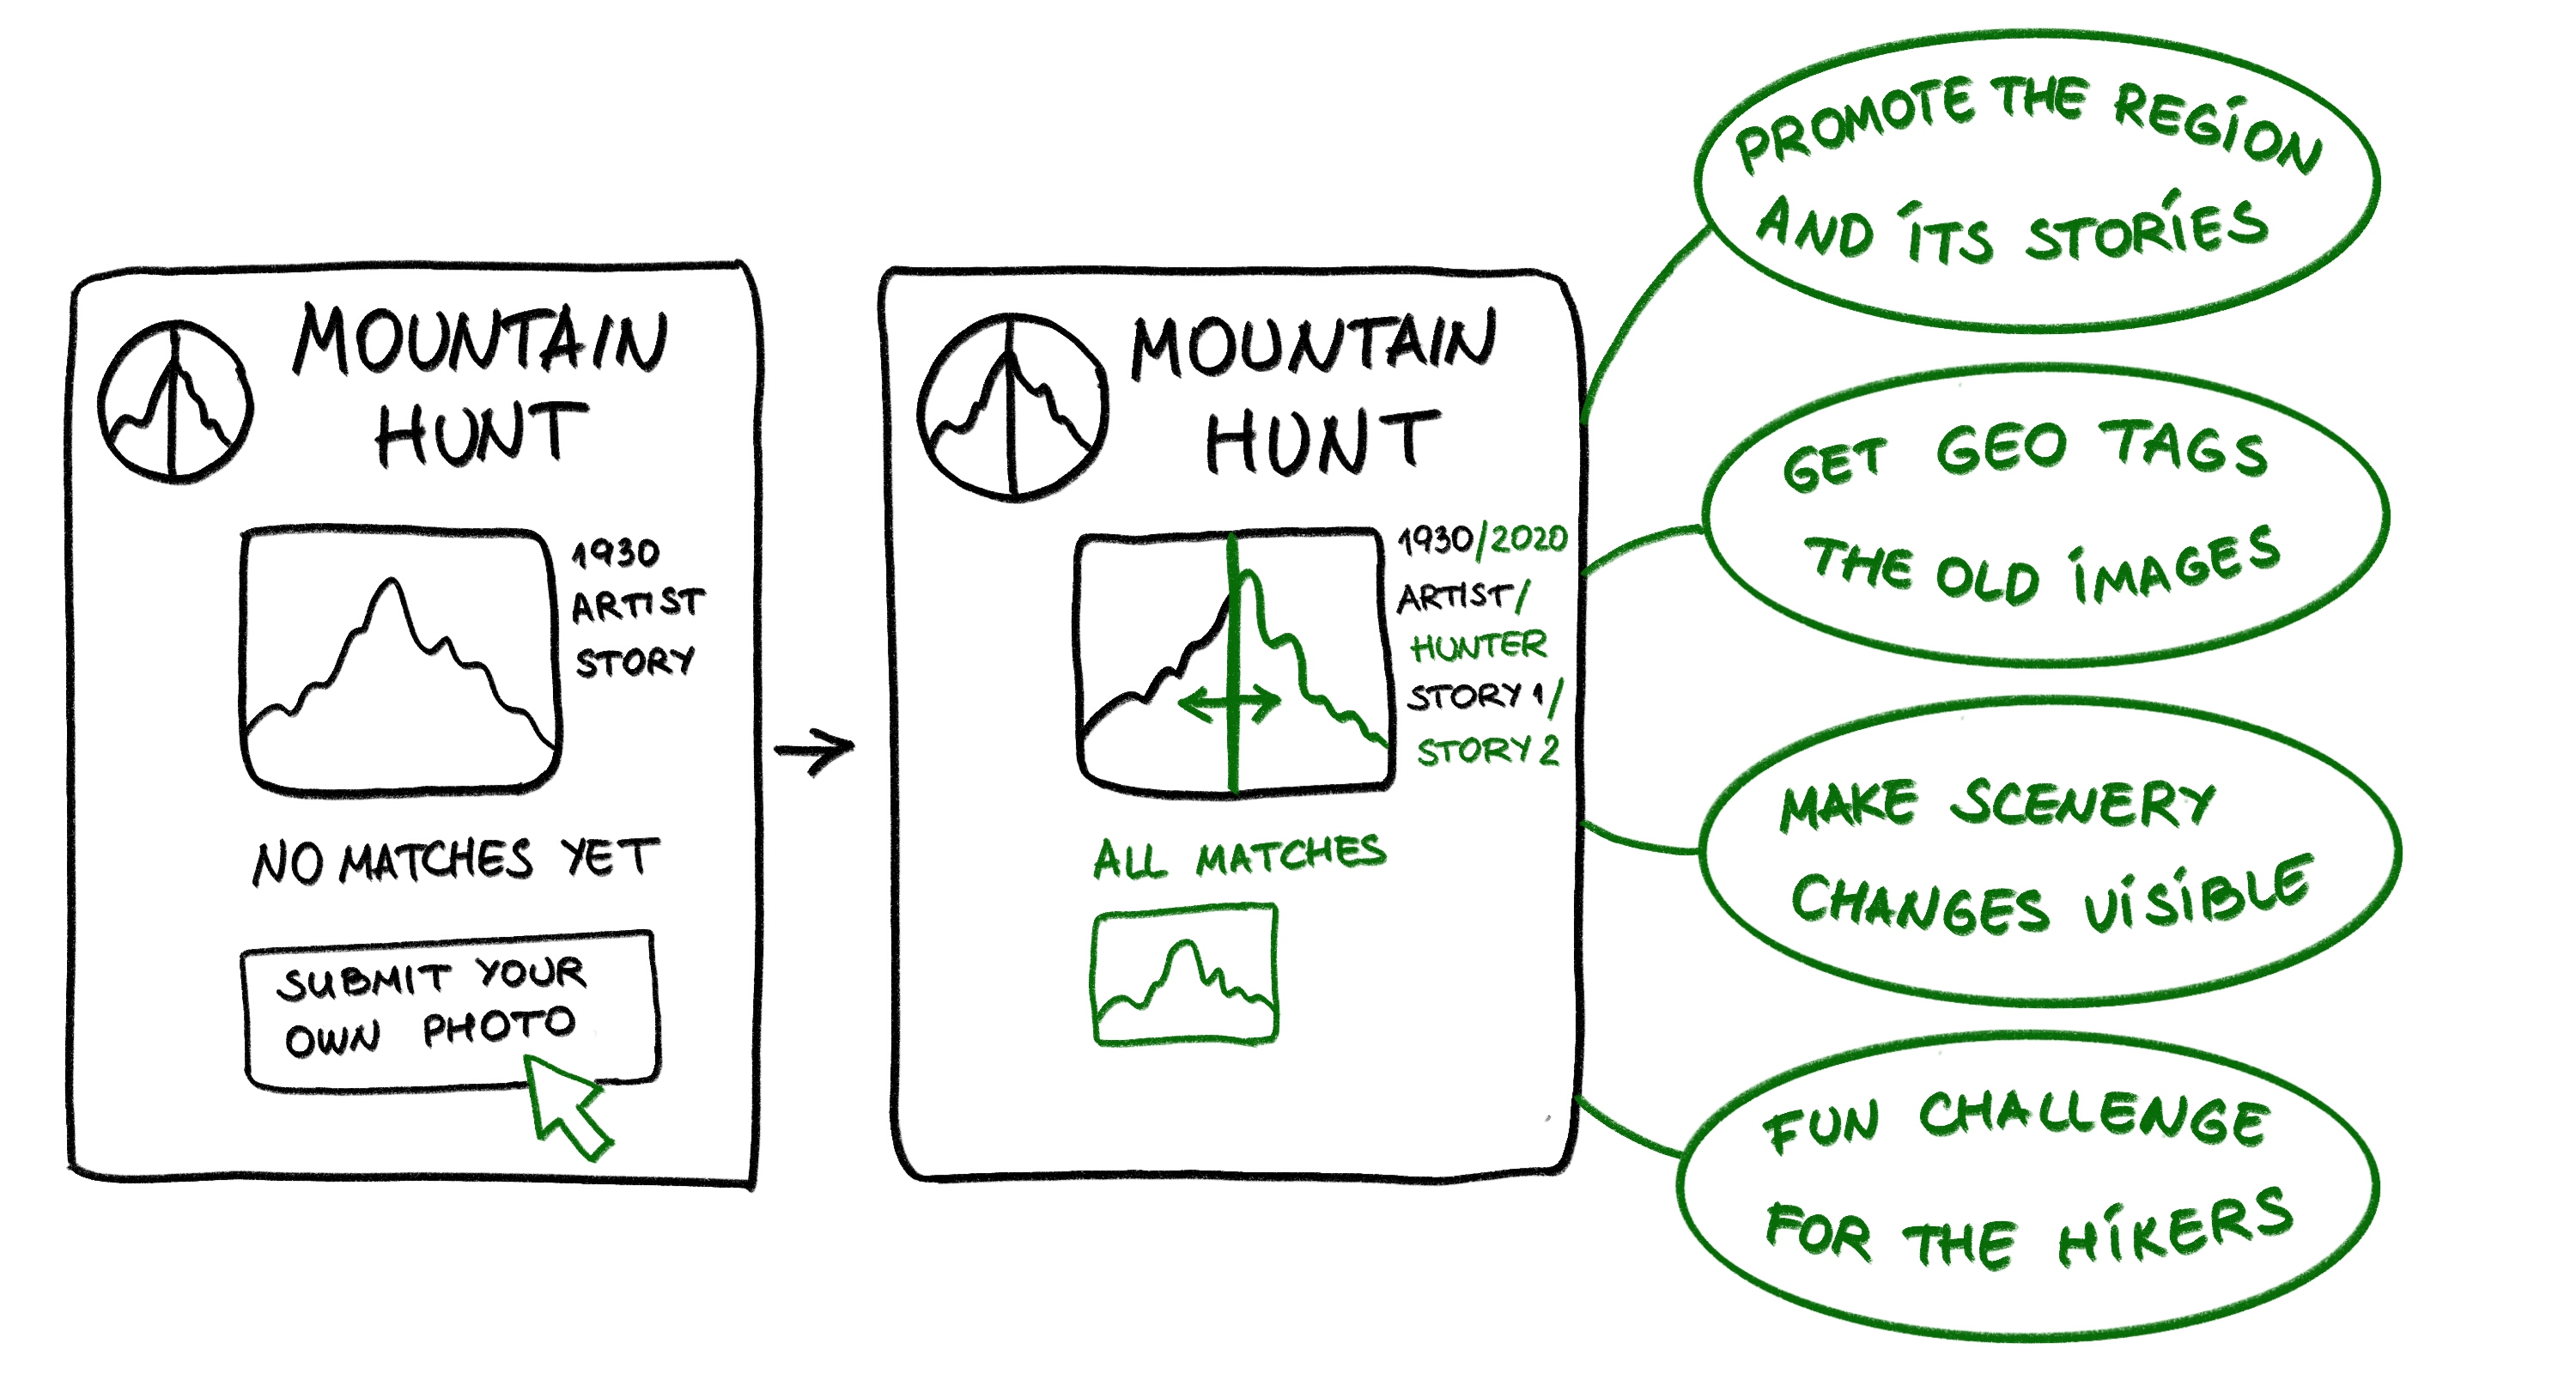 MOUNTAIN
HUNT
1930
ARTIST
STORY
NO MATCHES YET
SUBMIT YOUR
OWN PHOTO
MOUNTAIN
HUNT
1930/2020
ARTIST/
HUNTER
STORY 1/
STORY 2
ALL MATCHES
PROMOTE THE REGION
AND ITS STORIES
GET GEO TAGS
THE OLD IMAGES
MAKE SCENERY
CHANGES VISIBLE
FUN CHALLENGE
FOR THE HIKERS